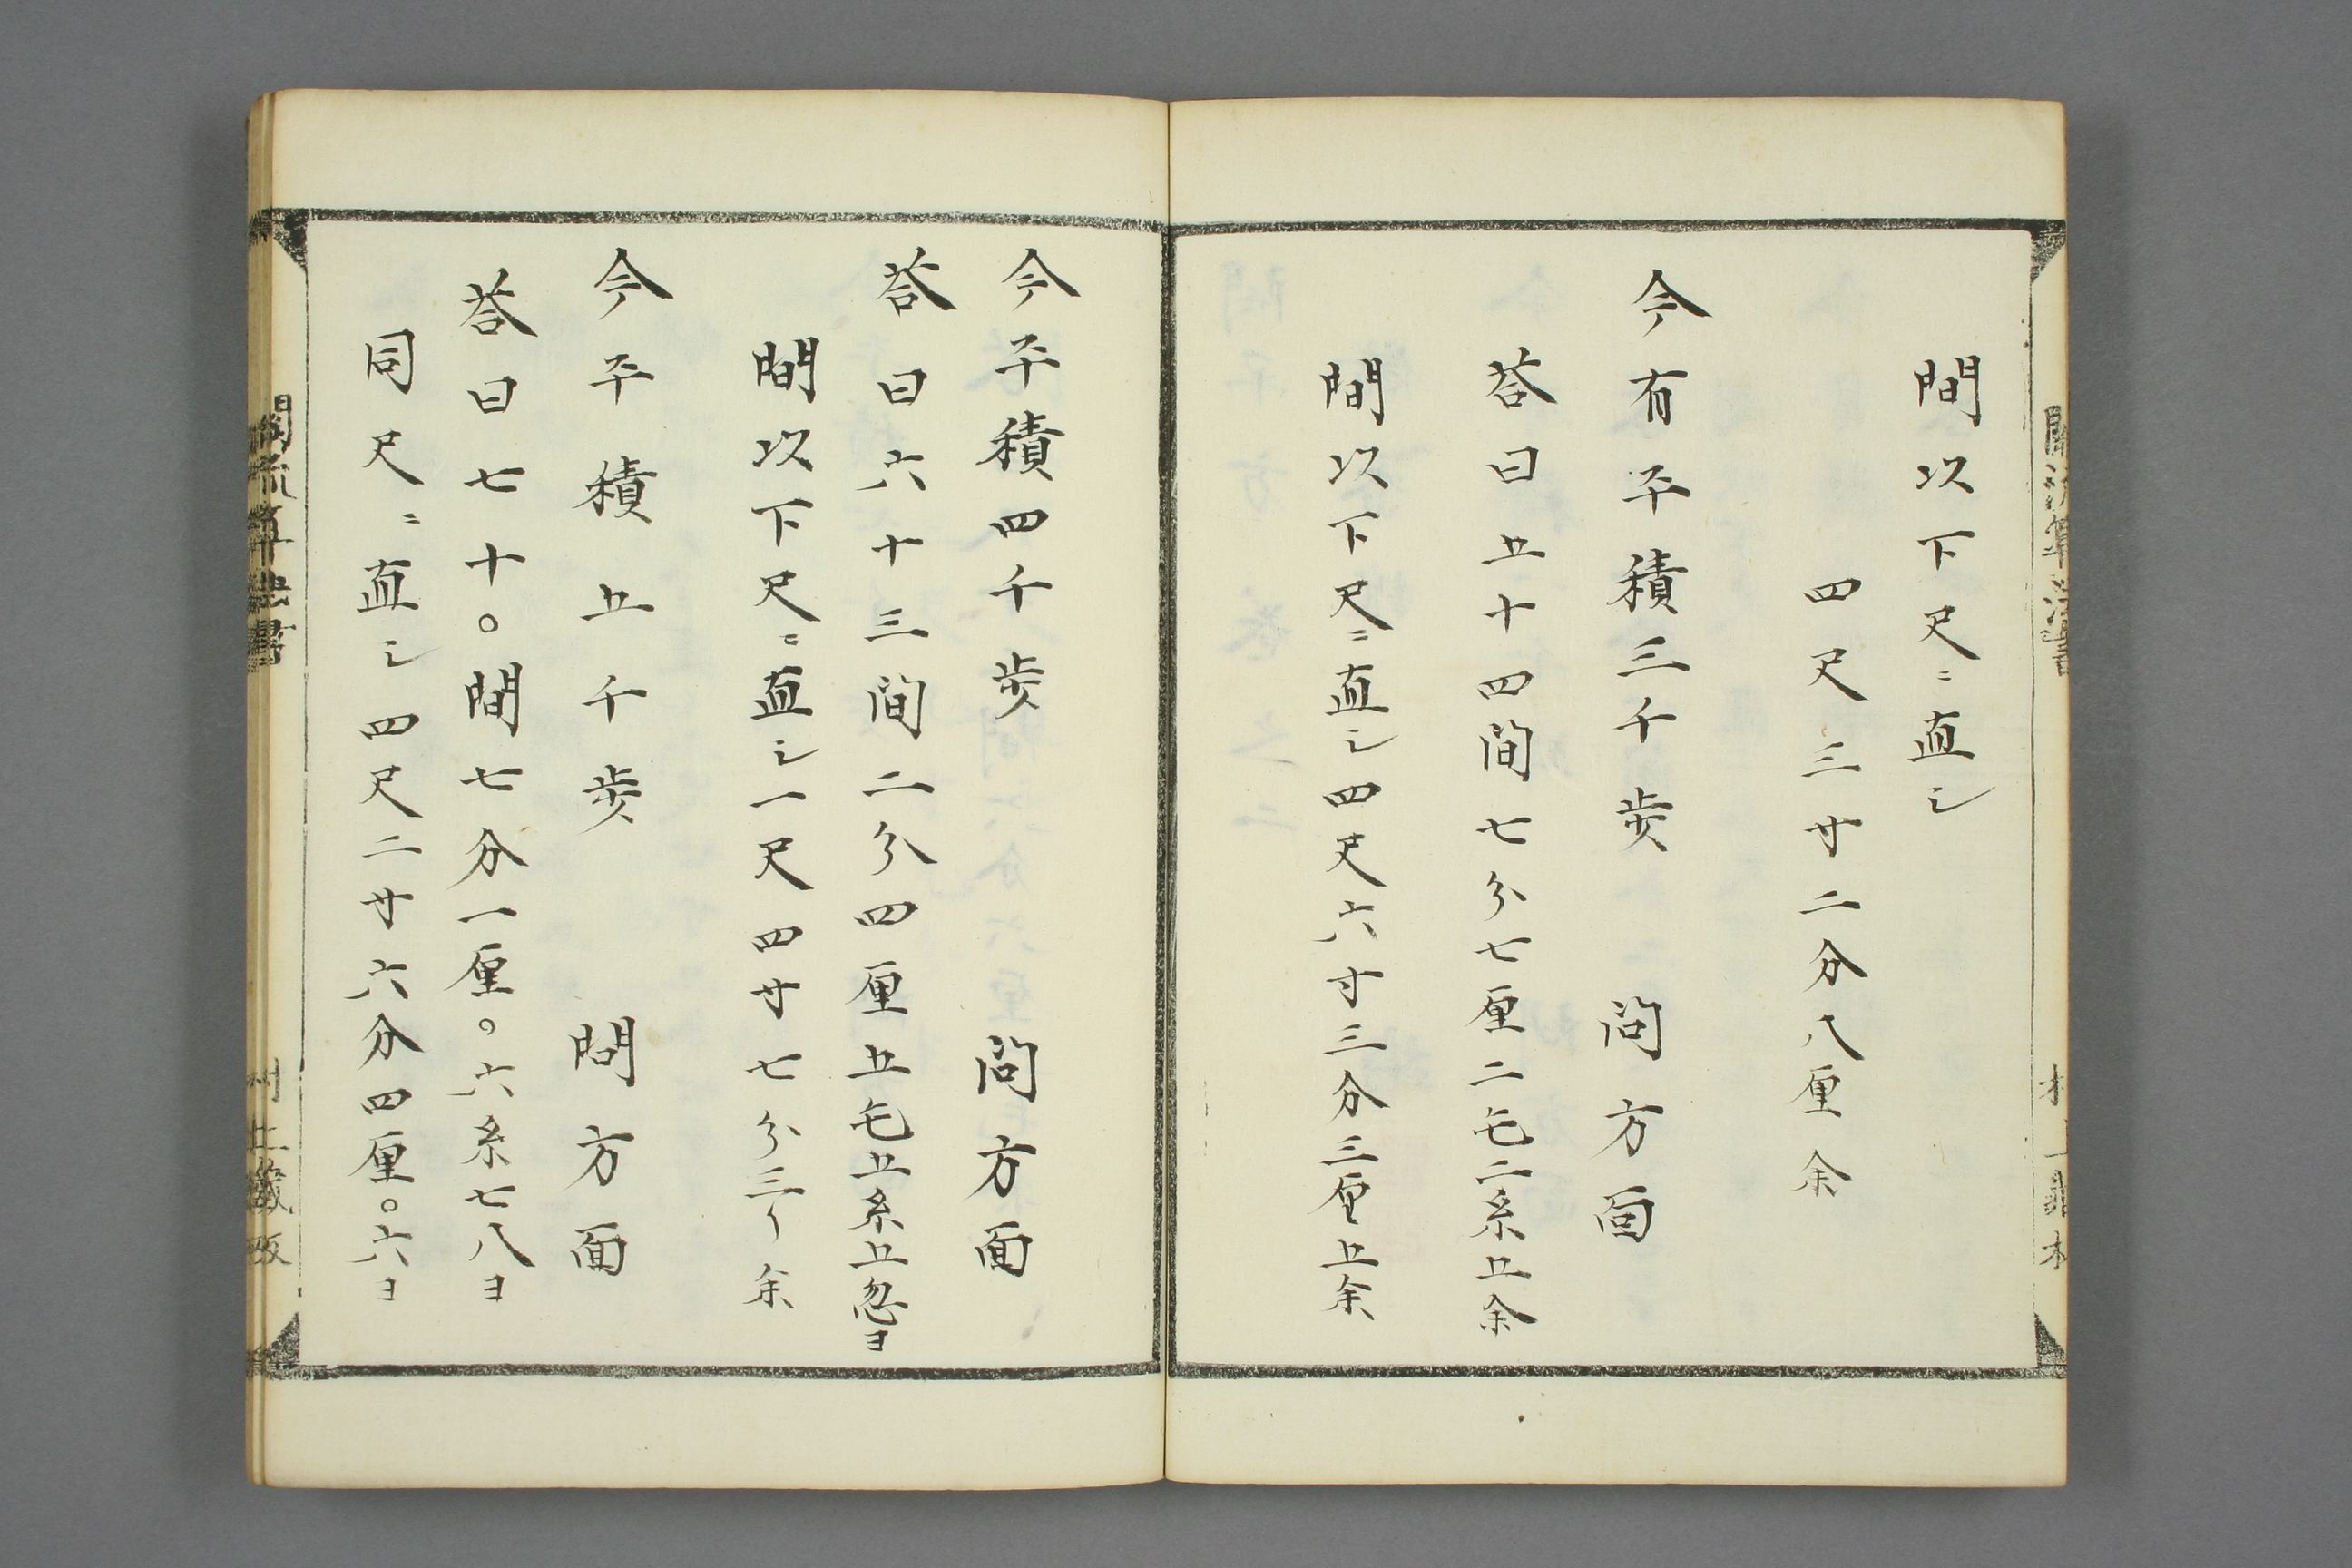 間以下尺ニ直シ
四尺三寸二分八厘余
今有平積三千歩　問方面
荅曰五十四間七分七厘二毛二糸五余
間以下尺ニ直シ四尺六寸三分三厘五余
今平積四千歩　問方面
荅曰六十三間二分四厘五毛五糸五忽ヨ
間以下尺ニ直シ一尺四寸七分三リ余
今平積五千歩　問方面
荅曰七十〇間七分一厘〇六糸七八ヨ
同尺ニ直シ四尺二寸六分四厘〇六ヨ
關流算法書